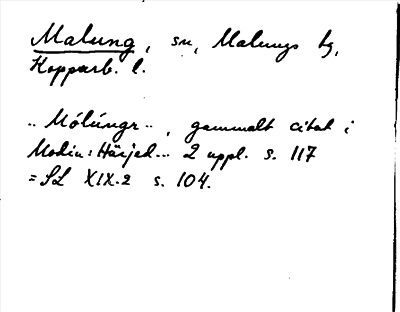 Malung, sn, Malungs tg,
Kopparb. l.
.. Mólúngr .. , gammalt citat i
Modin: Härjed... 2 uppl. s. 117
= SL XIX.2 s. 104.